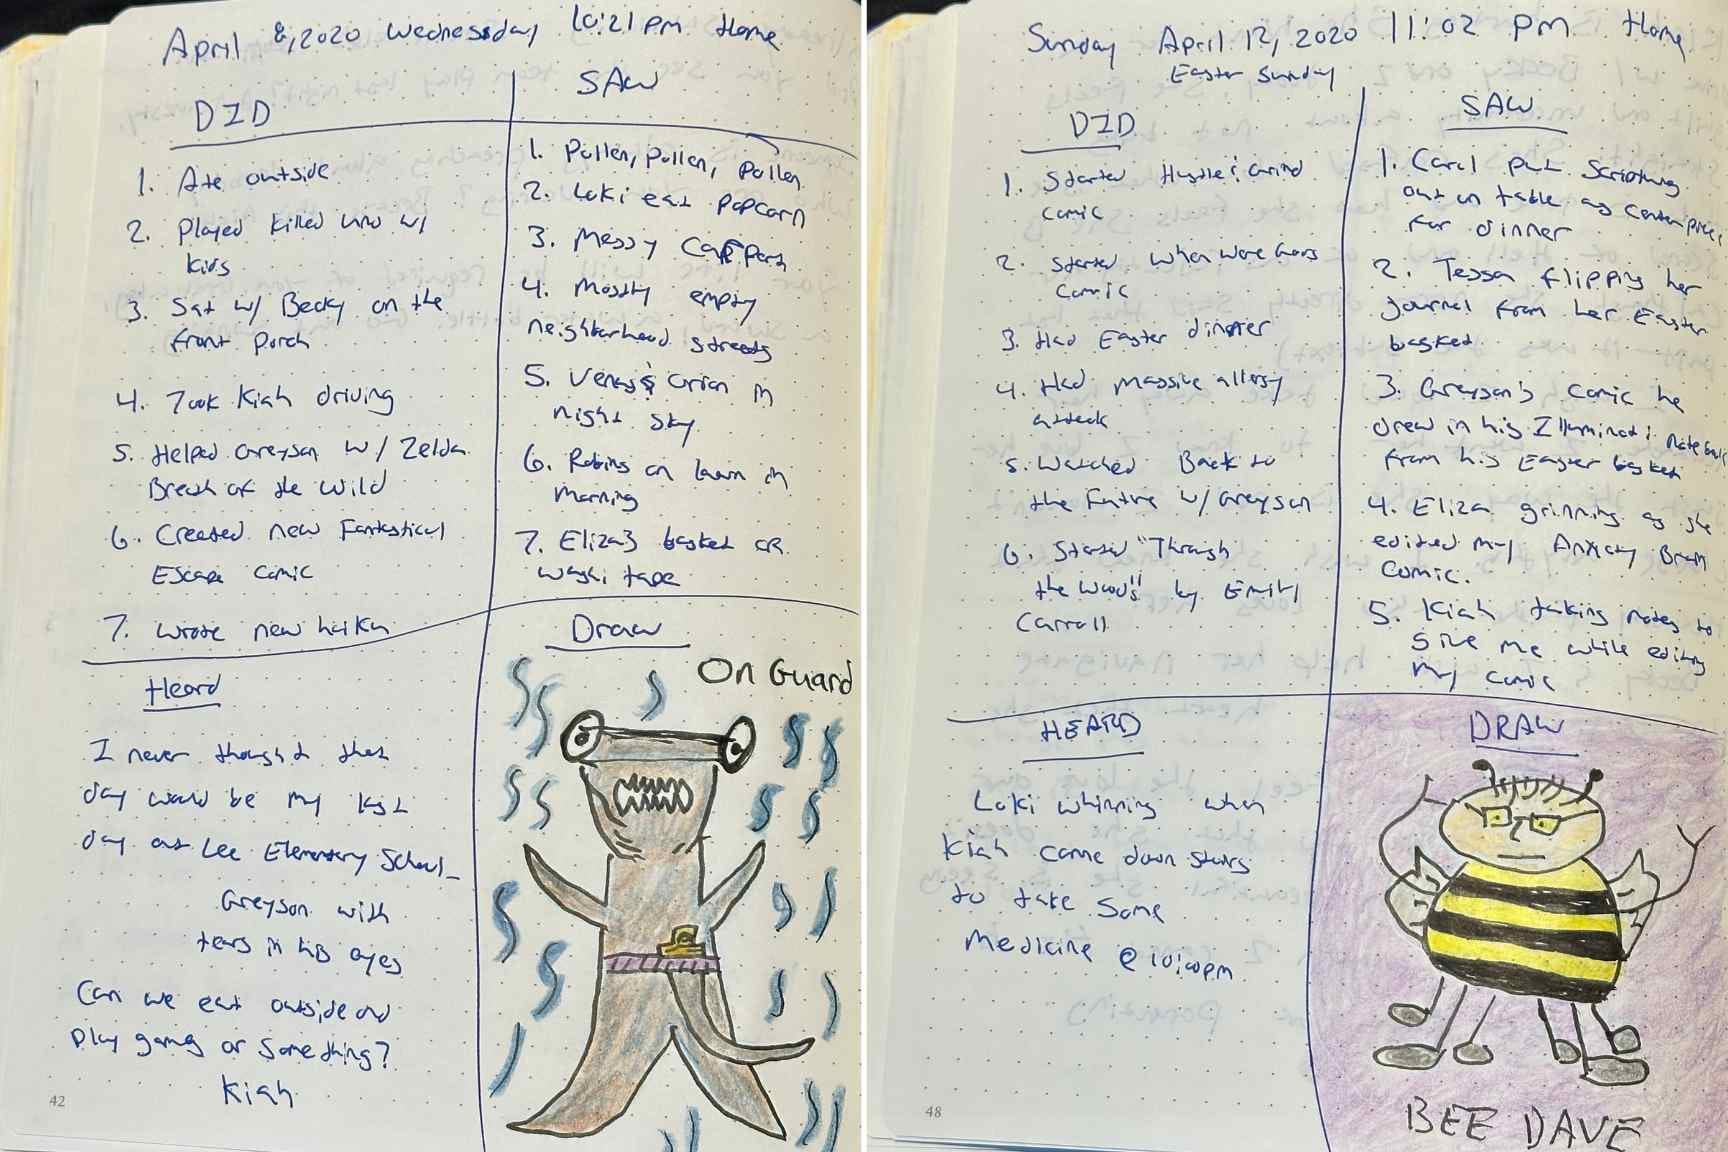 April 8, 2020 Wednesday 10:21 pm Home
DID
1. Ate outside
2. Played Killed Uno w/
kids
3. Sat w/ Becky on the
front porch
4. Took Kiah driving
5. Helped Greyson w/ Zelda
Breath of the Wild
6. Created new Fantastical
Escape comic
7. Wrote new haiku
SAW
1. Pollen, pollen, pollen
2. Loki eat popcorn
3. Messy carport
4. Mostly empty
neighborhood streets
5. Venus & Orion in
night sky
6. Robins on lawn in
morning
7. Eliza's basket of
washi tape
Heard
I never thought that
day would be my last
day at Lee Elementary School_
Greyson with
tears in his eyes
Can we eat outside and
play games or something?
Kiah
Draw
On Guard
42
Sunday April 12, 2020 11:02 pm Home
Easter Sunday
DID
1. Started Hustle & Grind
comic
2. Started When were
comic
3. Had Easter dinner
4. Had massive allergy
attack
5. Watched Back to
the Future w/ Greyson
6. Started "Through
the Woods" by Emily
Carroll
SAW
1. Carol put
out on table as centerpiece
for dinner
2. Tessa flipping her
journal from her Easter
basket
3. Greyson's comic he
drew in his Illuminati notebook
from his Easter basket
4. Eliza grinning as she
edited my Anxiety Brain
Comic.
5. Kiah taking notes to
give me while editing
my comic
HEARD
Loki whinning when
Kiah came down stairs
to take some
medicine @ 10:00pm
DRAW
BEE DAVE
48